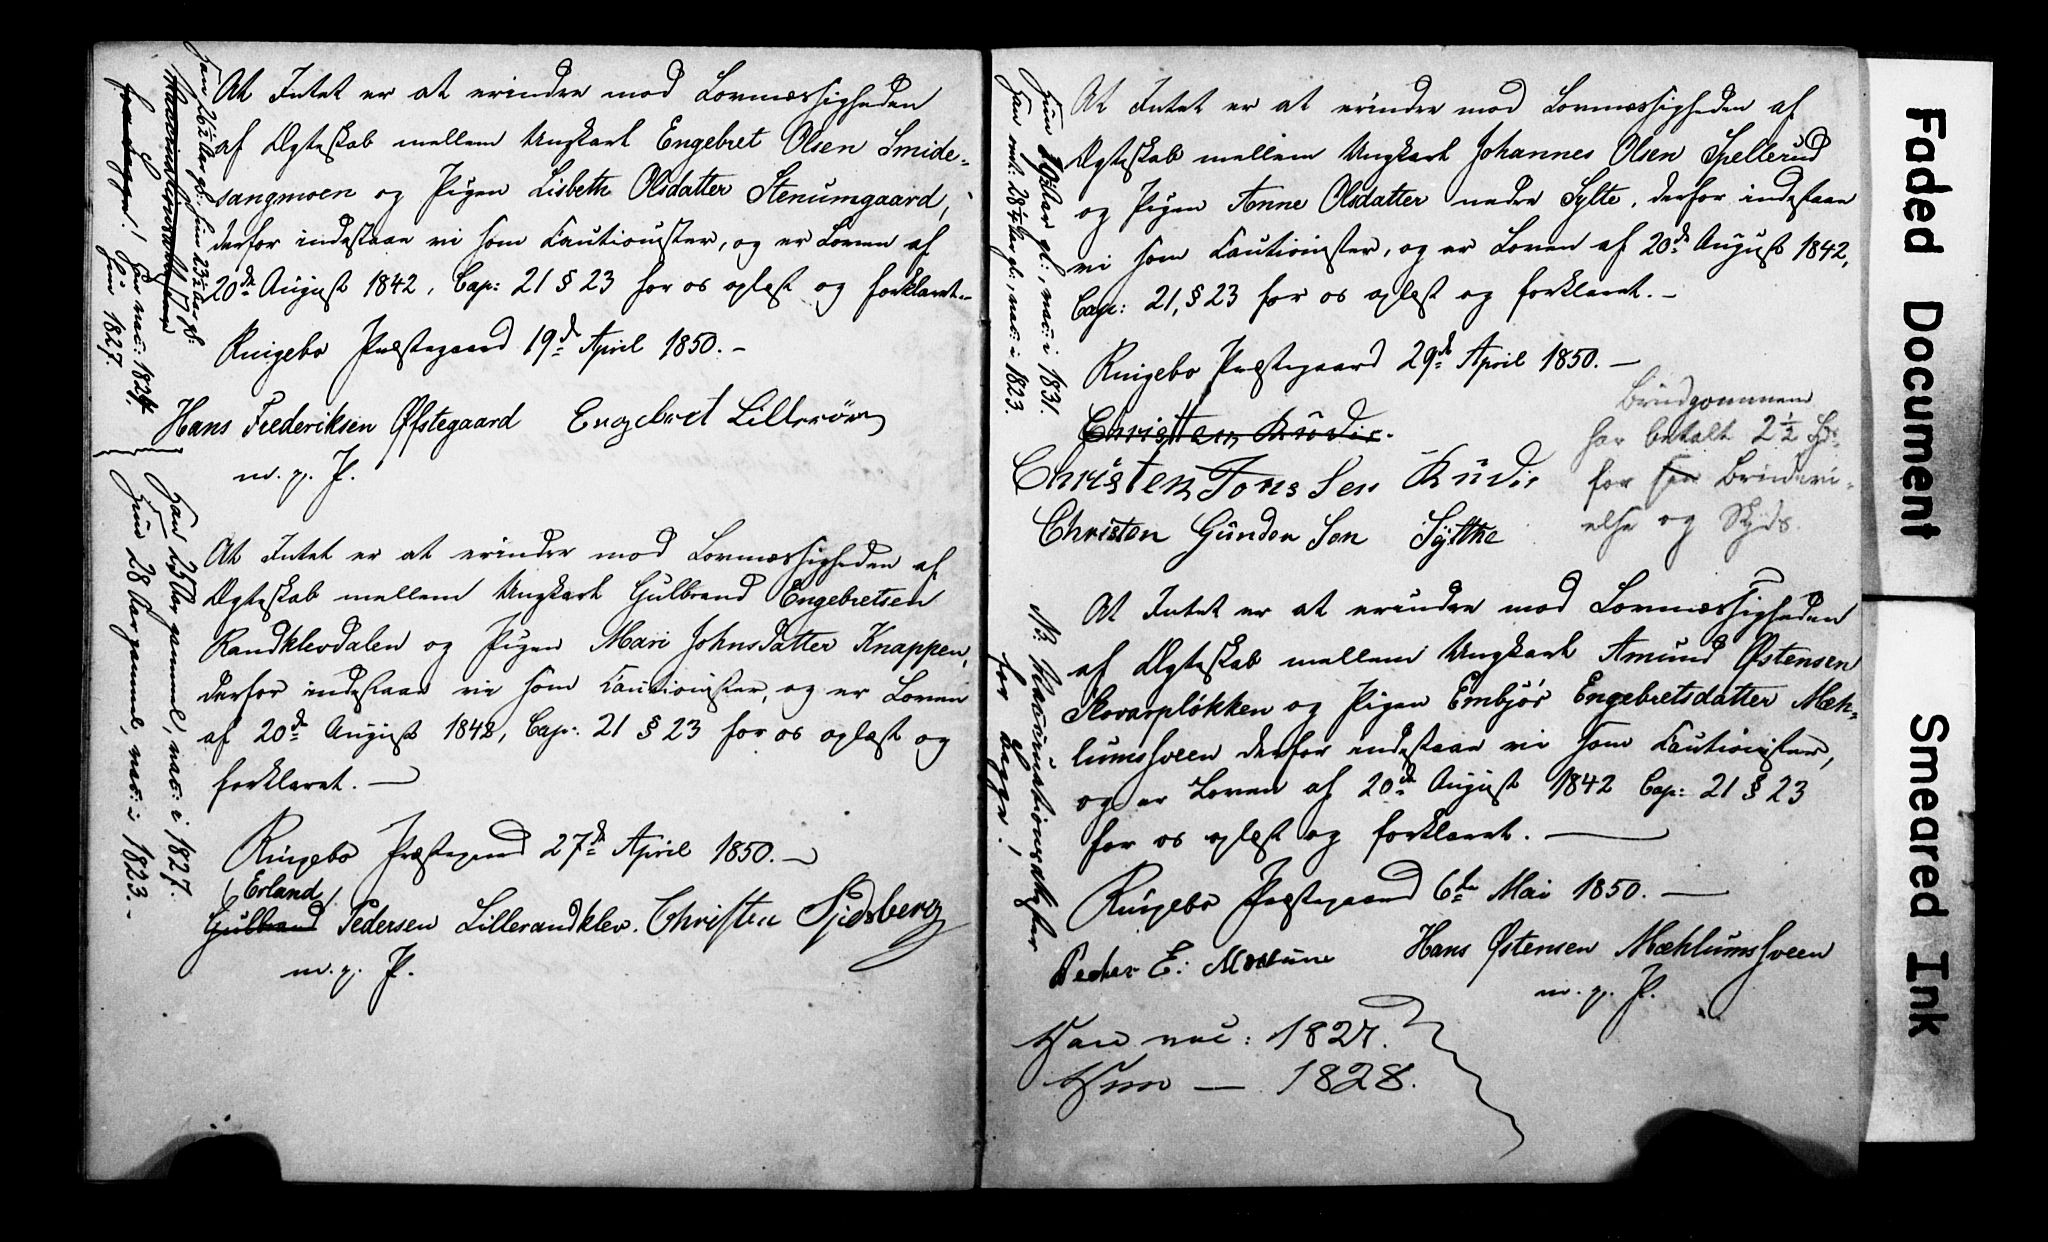 At Intet er at erindre mod Lovmæssigheden
af Ægteskab mellem Ungkarl Engebret Olsen Smide-
sangmoen og Pigen Lisbeth Olsdatter Stenumgaard,
derfor indestaae vi som Cautionister, og er Loven af
20de August 1842, Cap: 21 § 23 for os oplæst og forklaret.-
Ringebo Præstegaard 19de April 1850. -
Hans Frederiksen Øfstegaard Engebret Lillerøen
m. p. P.
Han 26½ Aar gl: Hun 23½ Aar gl:
for Lægges! Han vac: 1824,
Hun 1827.
At Intet er at erindre mod Lovmæssigheden af
Ægteskab mellem Ungkarl Gulbrand Engebretsen
Randklevdalen og Pigen Mari Johnsdatter Knappen,
derfor indestaae vi som Cautionister, og er Loven
af 20de August 1842, Cap: 21 § 23 for os oplæst og
forklaret. —
Ringebo Præstegaard 27de April 1850. —
(Erland)
Gulbrand Pedersen Lillerandklev. Christen Sjidsberg
m. p. P.
Han 25 Aar gammel, vac: i 1827.
Hun 28 Aar gammel, vac: i 1823.-
At Intet er at erindre mod Lovmæssigheden af
Ægteskab mellem Ungkarl Johannes Olsen Spellerud
og Pigen Anne Olsdatter nedre Sylte, derfor indestaae
vi som Cautionister, og er Loven af 20de August 1842,
Cap: 21, § 23 for os oplæst og forklaret. -
Ringebo Præstegaard 29de April 1850. —
Christen Rudie.
Christen Tons Sen Rudie
Christen Gunder Sen Sylthe
Brudgommen
har betalt 2½ Sp:
for Brudevi-
else og Skyds.
Hun 20 Aar gl:, vac: i 1831.
Han 28¼ Aar gl:, vac: i 1823.
At Intet er at erindre mod Lovmæssigheden
af Ægteskab mellem Ungkarl Amund Østensen
Skovarpløkken og Pigen Embjør Engebretsdatter Mæh-
lumsveen derfor indestaae vi som Cautionister,
og er Loven af 20de August 1842 Cap: 21 § 23
for os oplæst og forklaret. —
Ringebo Præstegaard 6te Mai 1850. —
Peder E: Hans Østensen Mæhlumsveen
m. p. P.
NB. Vaccinationsattester
for Lægges!
Han vac: 1827.
Hun — 1828.
Faded Document
Smeared Ink